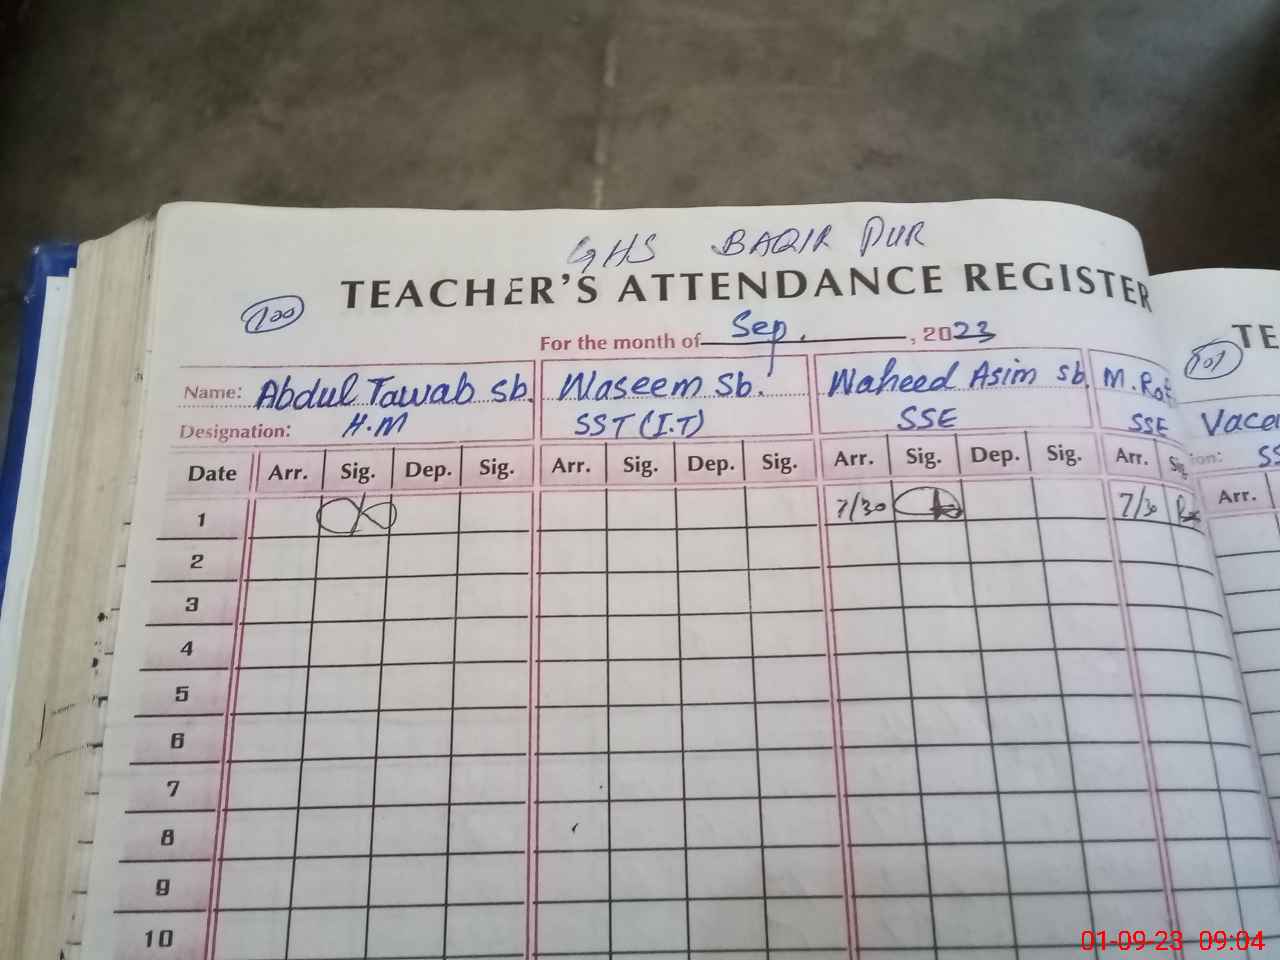 GHS BAQIR PUR
TEACHER'S ATTENDANCE REGISTER
100
For the month of Sep. , 2023
Name: Abdul Tawab sb. Waseem sb. Waheed Asim sb
Designation: H.M SST (I.T) SSE SSE
Date Arr. Sig. Dep. Sig. Arr. Sig. Dep. Sig. Arr. Sig. Dep. Sig. Arr.
1 7/30 7/30
2
3
4
5
6
7
8
9
10
TE
101
Arr.
01-09-23 09:04